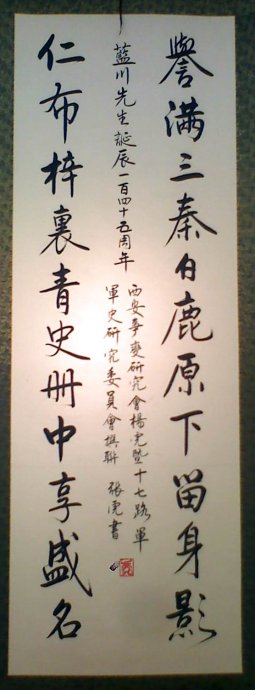 譽滿三秦白鹿原下留身影
藍川先生誕辰一百四十五周年
西安事變研究會楊虎暨十七路軍
軍史研究委員會撰聯 張虎書
仁布梓裏青史册中享盛名